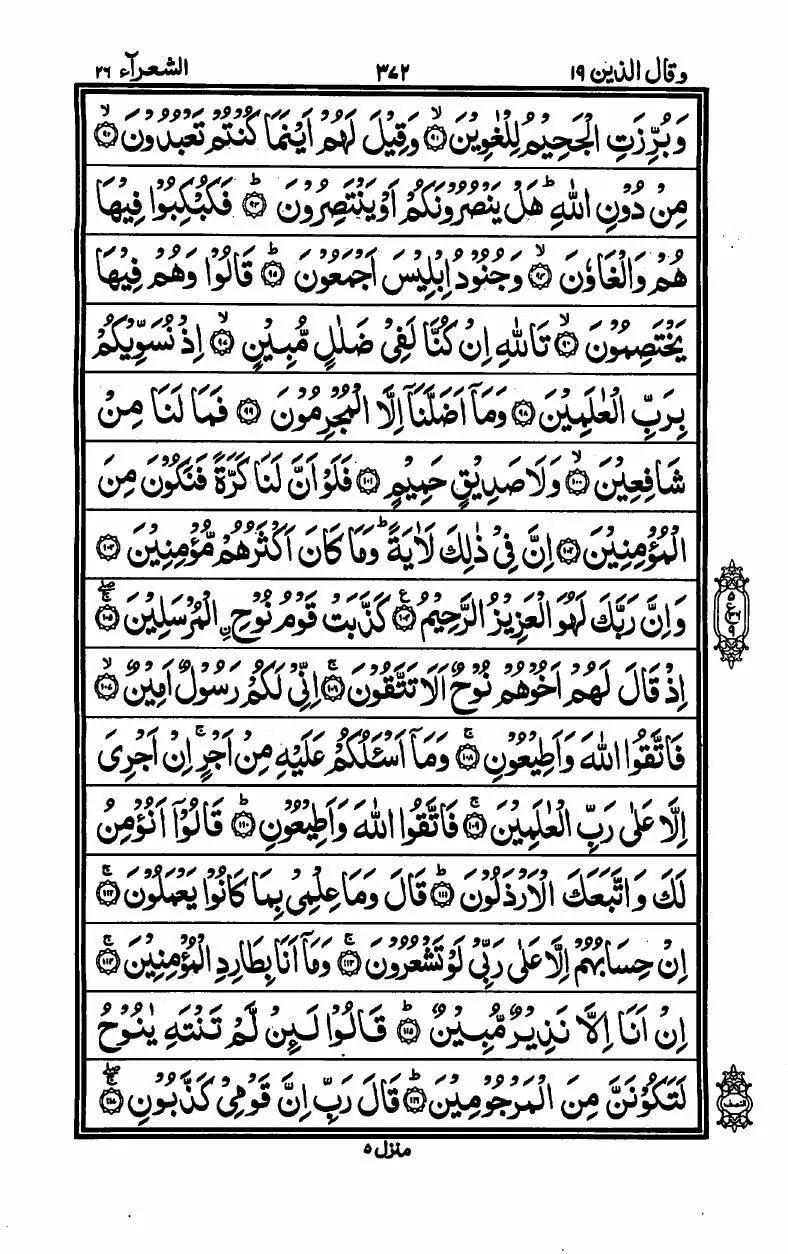 وقال الذين ١٩ ٣٧٢ الشعرآء ٢٦
وَبُرِّزَتِ الْجَحِيْمُ لِلْغٰوِيْنَ ۙ‏﴿۹۱﴾ وَقِيْلَ لَهُمْ اَيْنَمَا كُنْتُمْ تَعْبُدُوْنَ ۙ‏﴿۹۲﴾
مِنْ دُوْنِ اللّٰهِ ؕ هَلْ يَنْصُرُوْنَكُمْ اَوْ يَنْتَصِرُوْنَ ؕ‏﴿۹۳﴾ فَكُبْكِبُوْا فِيْهَا
هُمْ وَالْغَاوٗنَ ۙ‏﴿۹۴﴾ وَجُنُوْدُ اِبْلِيْسَ اَجْمَعُوْنَ ؕ‏﴿۹۵﴾ قَالُوْا وَهُمْ فِيْهَا
يَخْتَصِمُوْنَ ۙ‏﴿۹۶﴾ تَاللّٰهِ اِنْ كُنَّا لَفِىْ ضَلٰلٍ مُّبِيْنٍ ۙ‏﴿۹۷﴾ اِذْ نُسَوِّيْكُمْ
بِرَبِّ الْعٰلَمِيْنَ ﴿۹۸﴾ وَمَاۤ اَضَلَّنَاۤ اِلَّا الْمُجْرِمُوْنَ ﴿۹۹﴾ فَمَا لَنَا مِنْ
شَافِعِيْنَ ۙ‏﴿۱۰۰﴾ وَلَا صَدِيْقٍ حَمِيْمٍ ﴿۱۰۱﴾ فَلَوْ اَنَّ لَنَا كَرَّةً فَنَكُوْنَ مِنَ
الْمُؤْمِنِيْنَ ﴿۱۰۲﴾ اِنَّ فِىْ ذٰلِكَ لَاٰيَةً ؕ وَمَا كَانَ اَكْثَرُهُمْ مُّؤْمِنِيْنَ ﴿۱۰۳﴾
وَاِنَّ رَبَّكَ لَهُوَ الْعَزِيْزُ الرَّحِيْمُ ﴿۱۰۴﴾ ع كَذَّبَتْ قَوْمُ نُوْحِ ۨالْمُرْسَلِيْنَ ۖۚ‏﴿۱۰۵﴾
اِذْ قَالَ لَهُمْ اَخُوْهُمْ نُوْحٌ اَلَا تَتَّقُوْنَ ۚ‏﴿۱۰۶﴾ اِنِّىْ لَكُمْ رَسُوْلٌ اَمِيْنٌ ۙ‏﴿۱۰۷﴾
فَاتَّقُوا اللّٰهَ وَاَطِيْعُوْنِ ۚ‏﴿۱۰۸﴾ وَمَاۤ اَسْـَٔلُكُمْ عَلَيْهِ مِنْ اَجْرٍ ۚ اِنْ اَجْرِىَ
اِلَّا عَلٰى رَبِّ الْعٰلَمِيْنَ ۚ‏﴿۱۰۹﴾ فَاتَّقُوا اللّٰهَ وَاَطِيْعُوْنِ ؕ‏﴿۱۱۰﴾ قَالُوْۤا اَنُؤْمِنُ
لَكَ وَاتَّبَعَكَ الْاَرْذَلُوْنَ ؕ‏﴿۱۱۱﴾ قَالَ وَمَا عِلْمِىْ بِمَا كَانُوْا يَعْمَلُوْنَ ۚ‏﴿۱۱۲﴾
اِنْ حِسَابُهُمْ اِلَّا عَلٰى رَبِّىْ لَوْ تَشْعُرُوْنَ ۚ‏﴿۱۱۳﴾ وَمَاۤ اَنَا بِطَارِدِ الْمُؤْمِنِيْنَ ۚ‏﴿۱۱۴﴾
اِنْ اَنَا اِلَّا نَذِيْرٌ مُّبِيْنٌ ؕ‏﴿۱۱۵﴾ قَالُوْا لَىِٕنْ لَّمْ تَنْتَهِ يٰنُوْحُ
لَتَكُوْنَنَّ مِنَ الْمَرْجُوْمِيْنَ ؕ‏﴿۱۱۶﴾ قَالَ رَبِّ اِنَّ قَوْمِىْ كَذَّبُوْنِ ۖۚ‏﴿۱۱۷﴾
النصف
منزل ٥